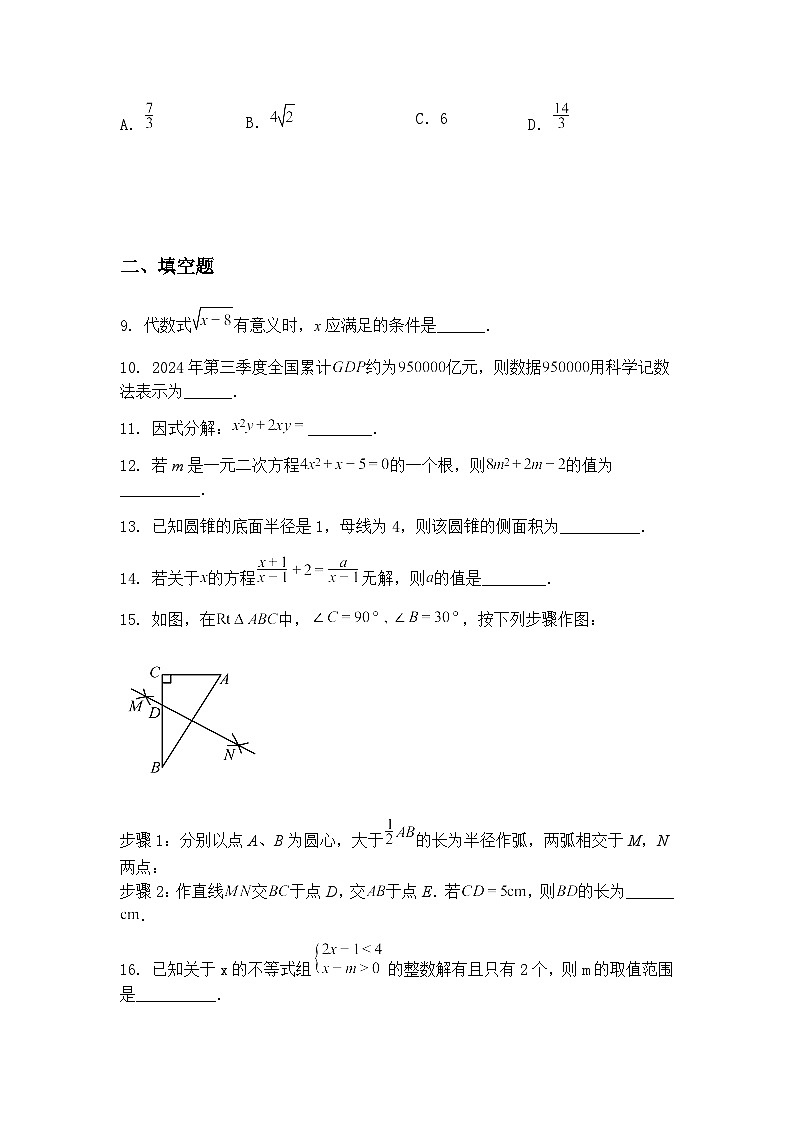 A. 7/3 B. 4√2 C. 6 D. 14/3
二、填空题
9. 代数式√(x－8)有意义时，x应满足的条件是______.
10. 2024年第三季度全国累计GDP约为950000亿元，则数据950000用科学记数
法表示为______.
11. 因式分解：x²y＋2xy＝________.
12. 若m是一元二次方程4x²＋x－5＝0的一个根，则8m²＋2m－2的值为
__________.
13. 已知圆锥的底面半径是1，母线为4，则该圆锥的侧面积为__________.
14. 若关于x的方程(x＋1)/(x－1)＋2＝a/(x－1)无解，则a的值是________.
15. 如图，在Rt△ABC中，∠C＝90°，∠B＝30°，按下列步骤作图：
C A
M D
N
B
步骤1：分别以点A、B为圆心，大于1/2 AB的长为半径作弧，两弧相交于M，N
两点：
步骤2：作直线MN交BC于点D，交AB于点E．若CD＝5cm，则BD的长为______
cm.
16. 已知关于x的不等式组{2x－1<4 x－m>0 的整数解有且只有2个，则m的取值范围
是__________.